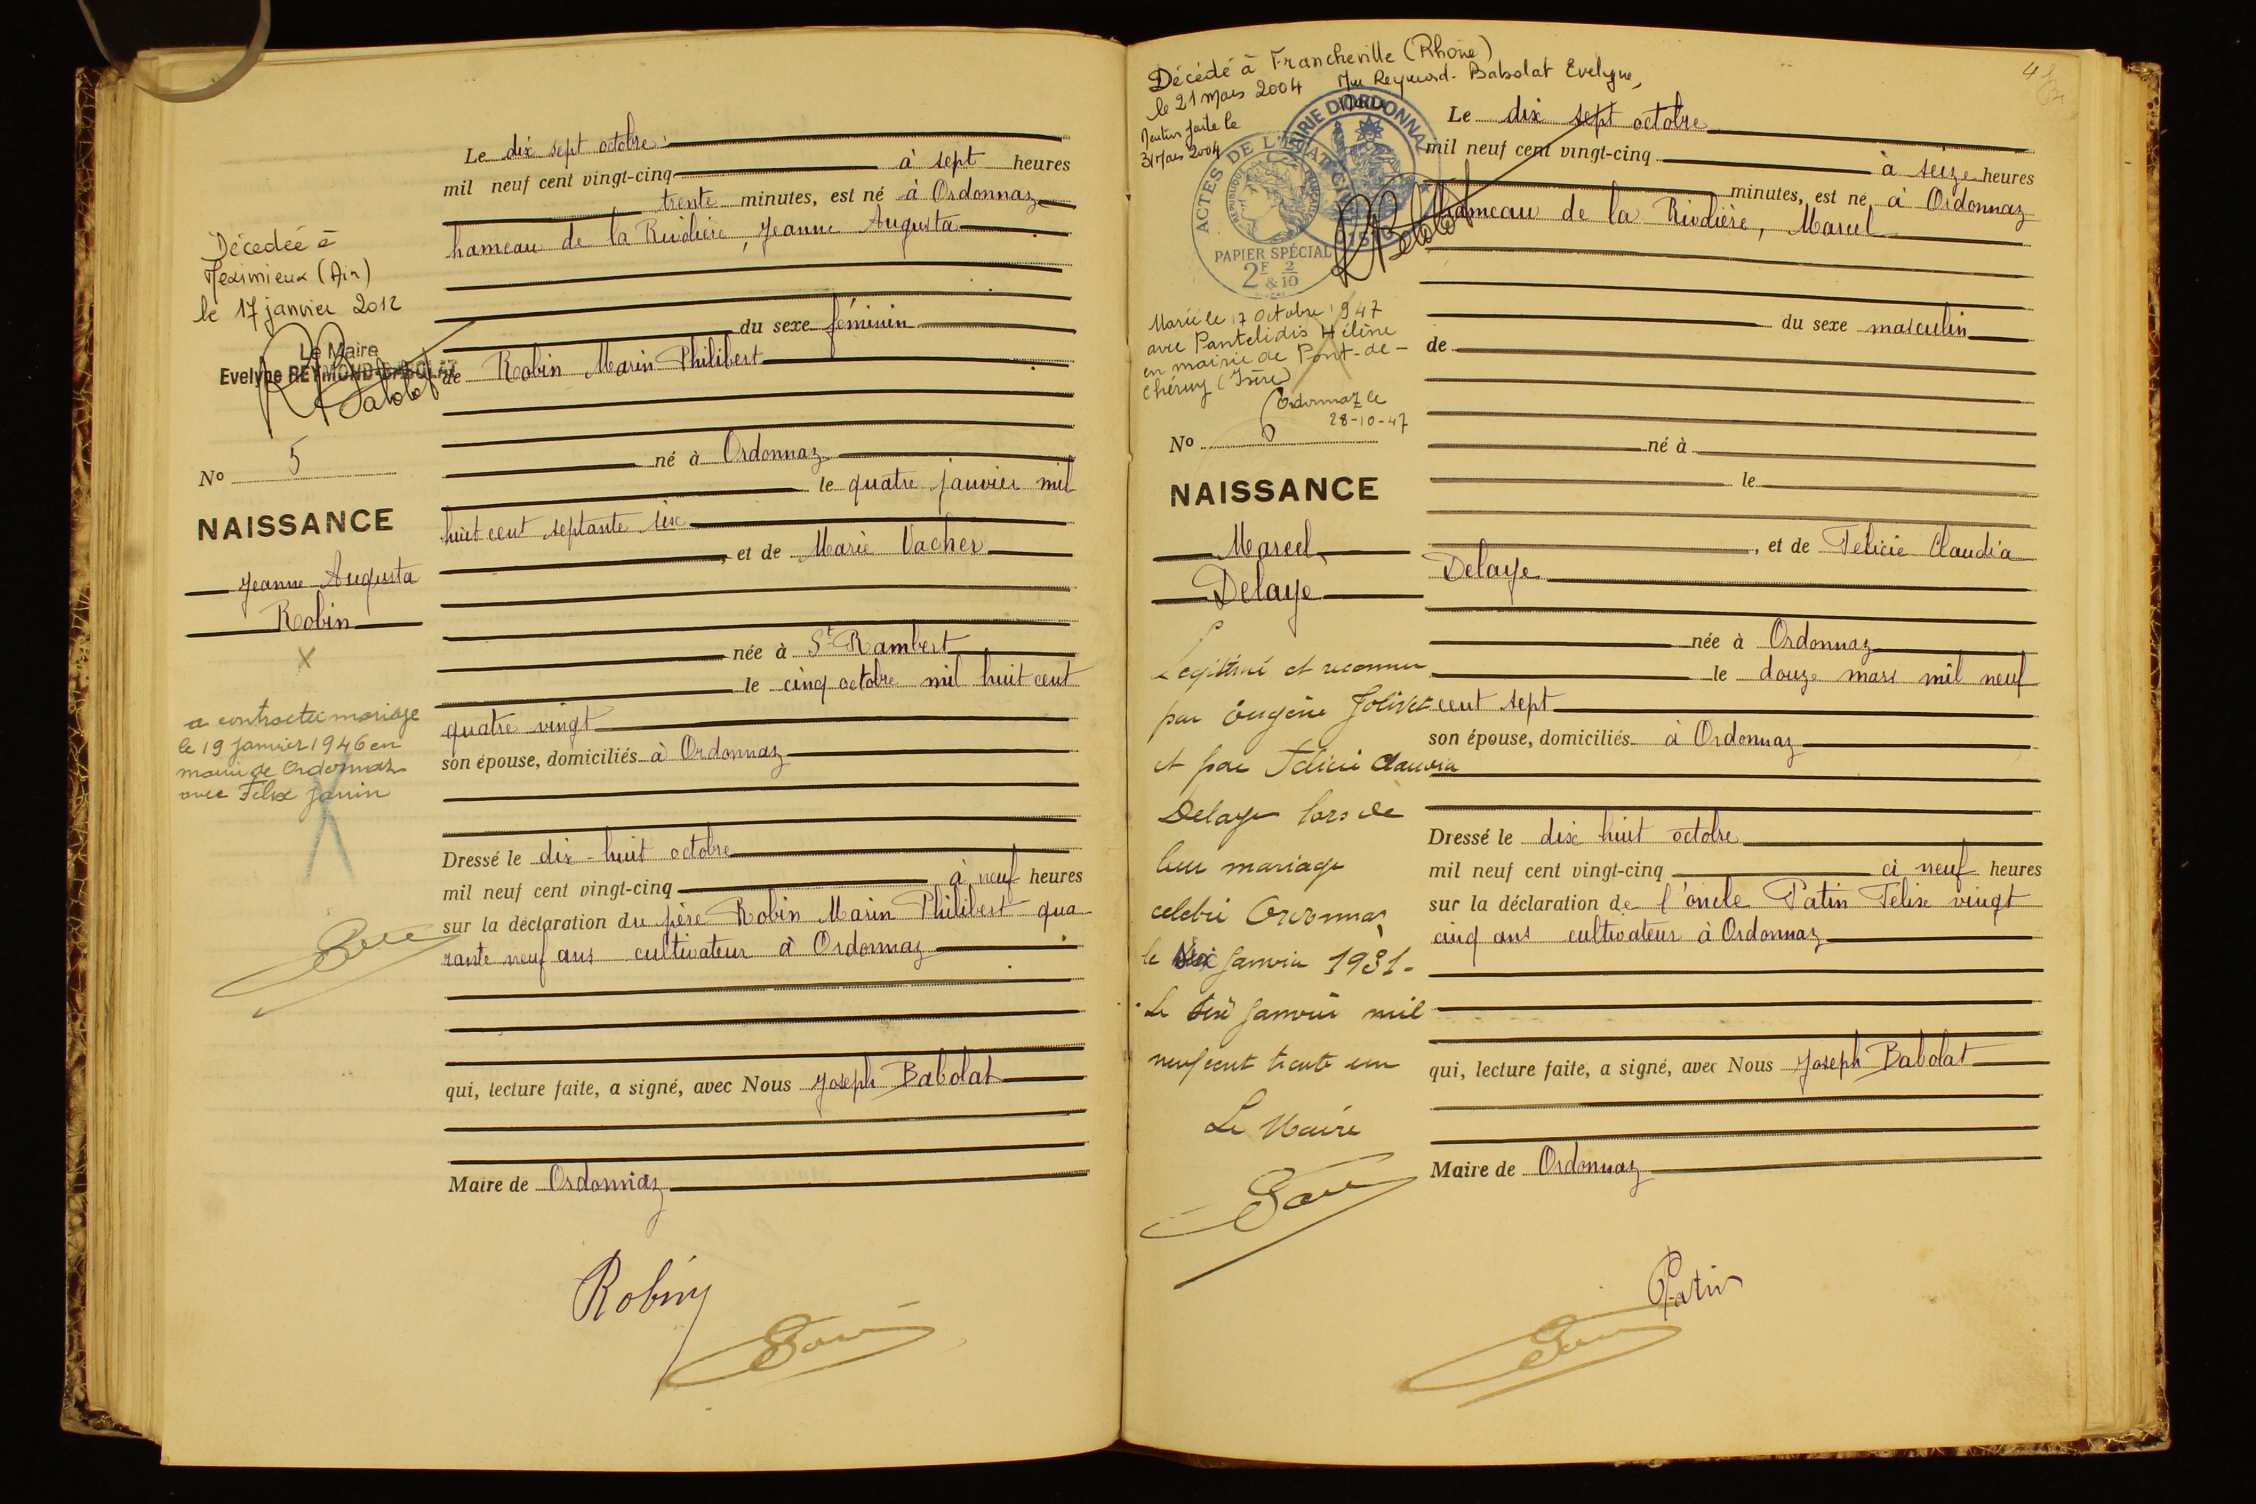 Le dix sept octobre
mil neuf cent vingt-cinq à sept heures
trente minutes, est né à Ordonnaz
hameau de la Rivolière, Jeanne Augusta
du sexe féminin
de Robin Marin Philibert
né à Ordonnaz
le quatre janvier mil
huit cent septante six
, et de Marie Vacher
née à St Rambert
le cinq octobre mil huit cent
quatre vingt
son épouse, domiciliés à Ordonnaz
Dressé le dix-huit octobre
mil neuf cent vingt-cinq à neuf heures
sur la déclaration du père Robin Marin Philibert qua
rante neuf ans cultivateur à Ordonnaz
qui, lecture faite, a signé, avec Nous Joseph Babolat
Maire de Ordonnaz
Robin
Décedée à
Meximieux (Ain)
le 17 janvier 2012
Le Maire
Evelyne REYMOND-BABOLAT
No 5
NAISSANCE
Jeanne Augusta
Robin
a contracté mariage
le 19 Janvier 1946 en
mairie de Ordonnaz
avec Felix Janin
Décédé à Francheville (Rhône)
le 21 mars 2004 Reymond-Babolat Evelyne,
Mention faite le
31 Mars 2004
MAIRIE D'ORDONNAZ
ACTES DE L'ÉTAT CIVIL
PAPIER SPÉCIAL
2F & 2/10
Le dix sept octobre
mil neuf cent vingt-cinq à seize heures
minutes, est né à Ordonnaz
hameau de la Rivolière, Marcel
du sexe masculin
de
né à
le
, et de Felicie Claudia
Delaye
née à Ordonnaz
le douze mars mil neuf
cent sept
son épouse, domiciliés à Ordonnaz
Dressé le dix huit octobre
mil neuf cent vingt-cinq à neuf heures
sur la déclaration de l'oncle Patin Felix vingt
cinq ans cultivateur à Ordonnaz
qui, lecture faite, a signé, avec Nous Joseph Babolat
Maire de Ordonnaz
Patin
Marié le 17 Octobre 1947
avec Pantelidis Hélène
en mairie de Pont-de-
Chéruy (Isère)
Ordonnaz le
28-10-47
No 6
NAISSANCE
Marcel
Delaye
Legitimé et reconnu
par Eugène Jolivet
et par Felicie Claudia
Delaye lors de
leur mariage
celebré Ordonnaz
le janvier 1931.
Le janvier mil
neuf cent trente un
Le Maire